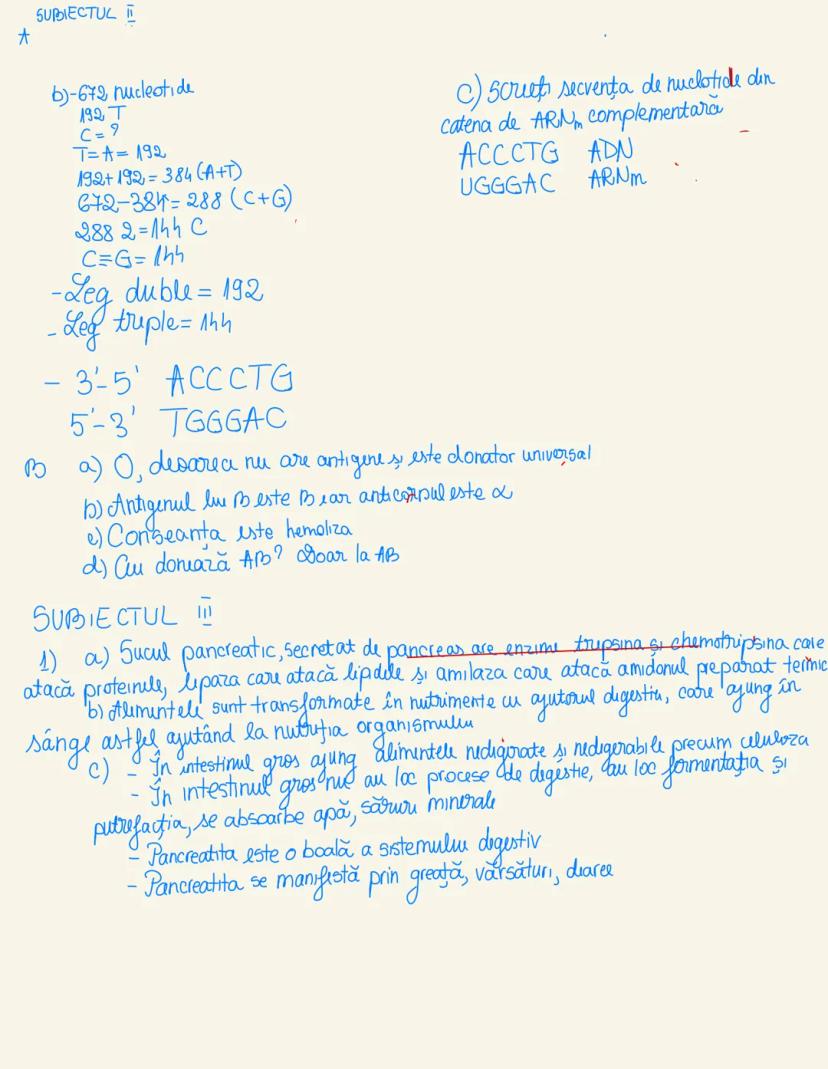 SUBIECTUL II
A
b)-672 nucleotide
192 T
C = ?
T=A= 192
192+192= 384 (A+T)
672-384= 288 (C+G)
288 2=144 C
C≡G= 144
-Leg duble= 192
- Leg triple= 144
- 3'-5' ACCCTG
5'-3' TGGGAC
C) Scrieți secvența de nuclotide din
catena de ARNm complementară
ACCCTG ADN
UGGGAC ARNm
B a) O, deoarece nu are antigene și este donator universal
b) Antigenul lui B este B iar anticorpul este α
c) Conseanța este hemoliza
d) Cui donează AB? Doar la AB
SUBIECTUL III
1) a) Sucul pancreatic, secretat de pancreas are enzime tripsina și chemotripsina care
atacă proteinule, lipaza care atacă lipdele și amilaza care atacă amidonul preparat termic
b) Alimentele sunt transformate în nutrimente cu ajutorul digestiu, care ajung în
sânge astfel ajutând la nutriția organismului
c) - În intestinul gros ajung alimentele nedigerate și nedigerabile precum celuloza
- În intestinul gros nu au loc procese de digestie, au loc fermentația și
putrefacția, se absoarbe apă, săruri minerale
- Pancreatita este o boală a sistemului digestiv
- Pancreatita se manifestă prin greață, vărsături, diaree